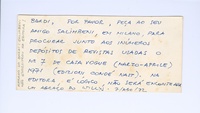 BARDI, POR FAVOR, PEÇA AO SEU
AMIGO SALIMBENI, EM MILANO, PARA
PROCURAR JUNTO AOS INÚMEROS
DEPÓSITOS DE REVISTAS USADAS O
Nº 7 DE CASA VOGUE (MARZO-APRILE)
1971 (EDITION CONDÉ NAST). NA
EDITORA É LÓGICO NÃO SERÁ
UM ABRAÇO DO